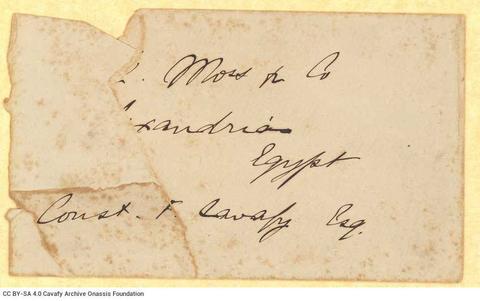 . Moss & Co
xandria
Egypt
Const. F. Cavafy Esq.
CC BY-SA 4.0 Cavafy Archive Onassis Foundation